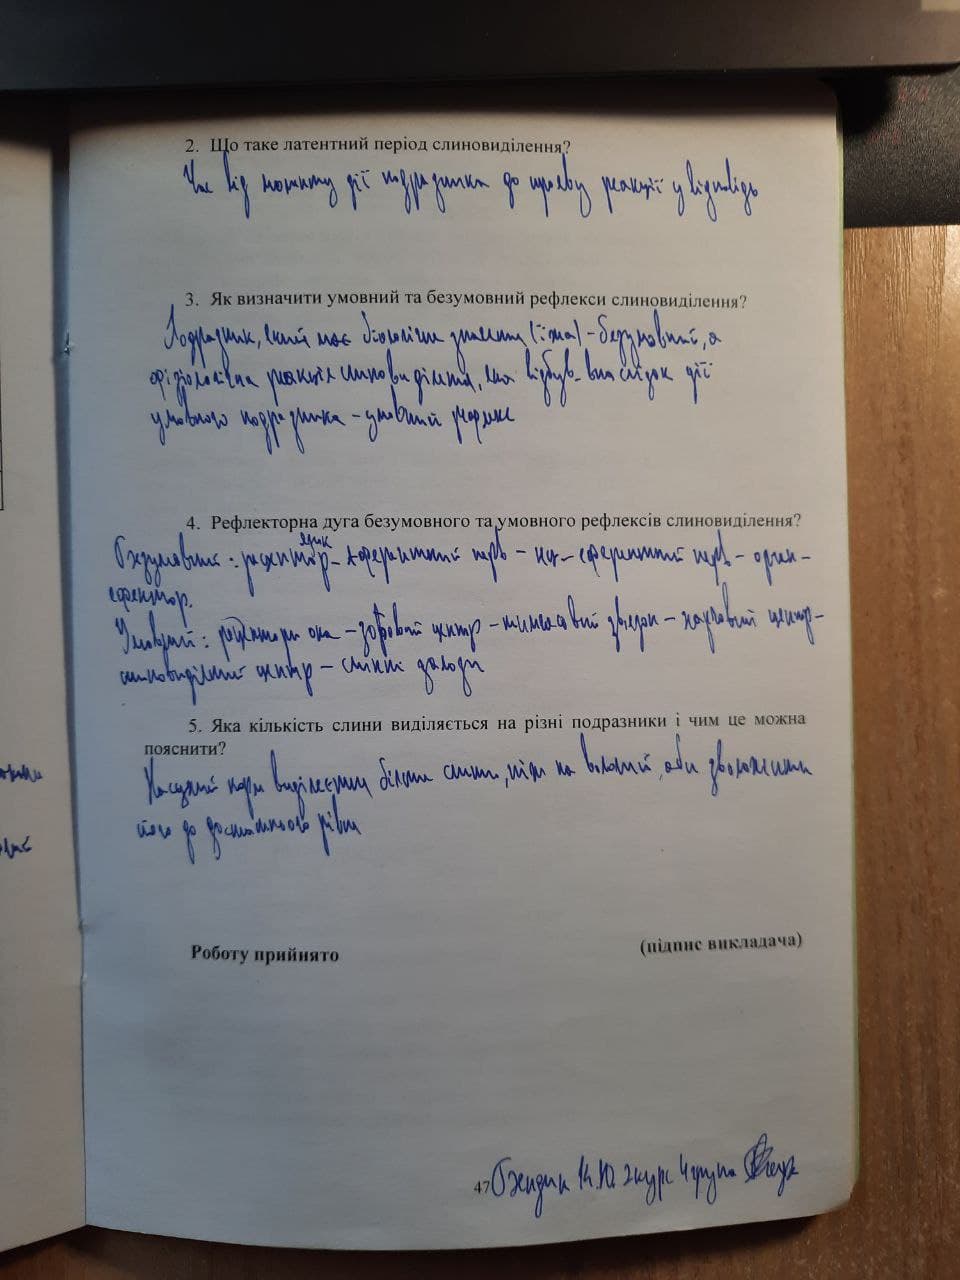 2. Що таке латентний період слиновиділення?
Час від моменту дії подразника до прояву реакції у відповідь
3. Як визначити умовний та безумовний рефлекси слиновиділення?
Подразник, який має біологічне значення (їжа) - безумовний, а
фізіологічна реакція слиновиділення, яка відбув. внаслідок дії
умовного подразника - умовний рефлекс
4. Рефлекторна дуга безумовного та умовного рефлексів слиновиділення?
язик
Безумовний: рецептор - аферентний нерв - нц - еферентний нерв - орган-
ефектор.
Умовний: рецептори ока - зоровий центр - тимчасовий зв'язок - харчовий центр -
слиновидільний центр - слинні залози
5. Яка кількість слини виділяється на різні подразники і чим це можна
пояснити?
На сухий корм виділяється більше слини, ніж на вологий, аби зволожити
його до достатнього рівня
Роботу прийнято (підпис викладача)
47 2 курс 4 група